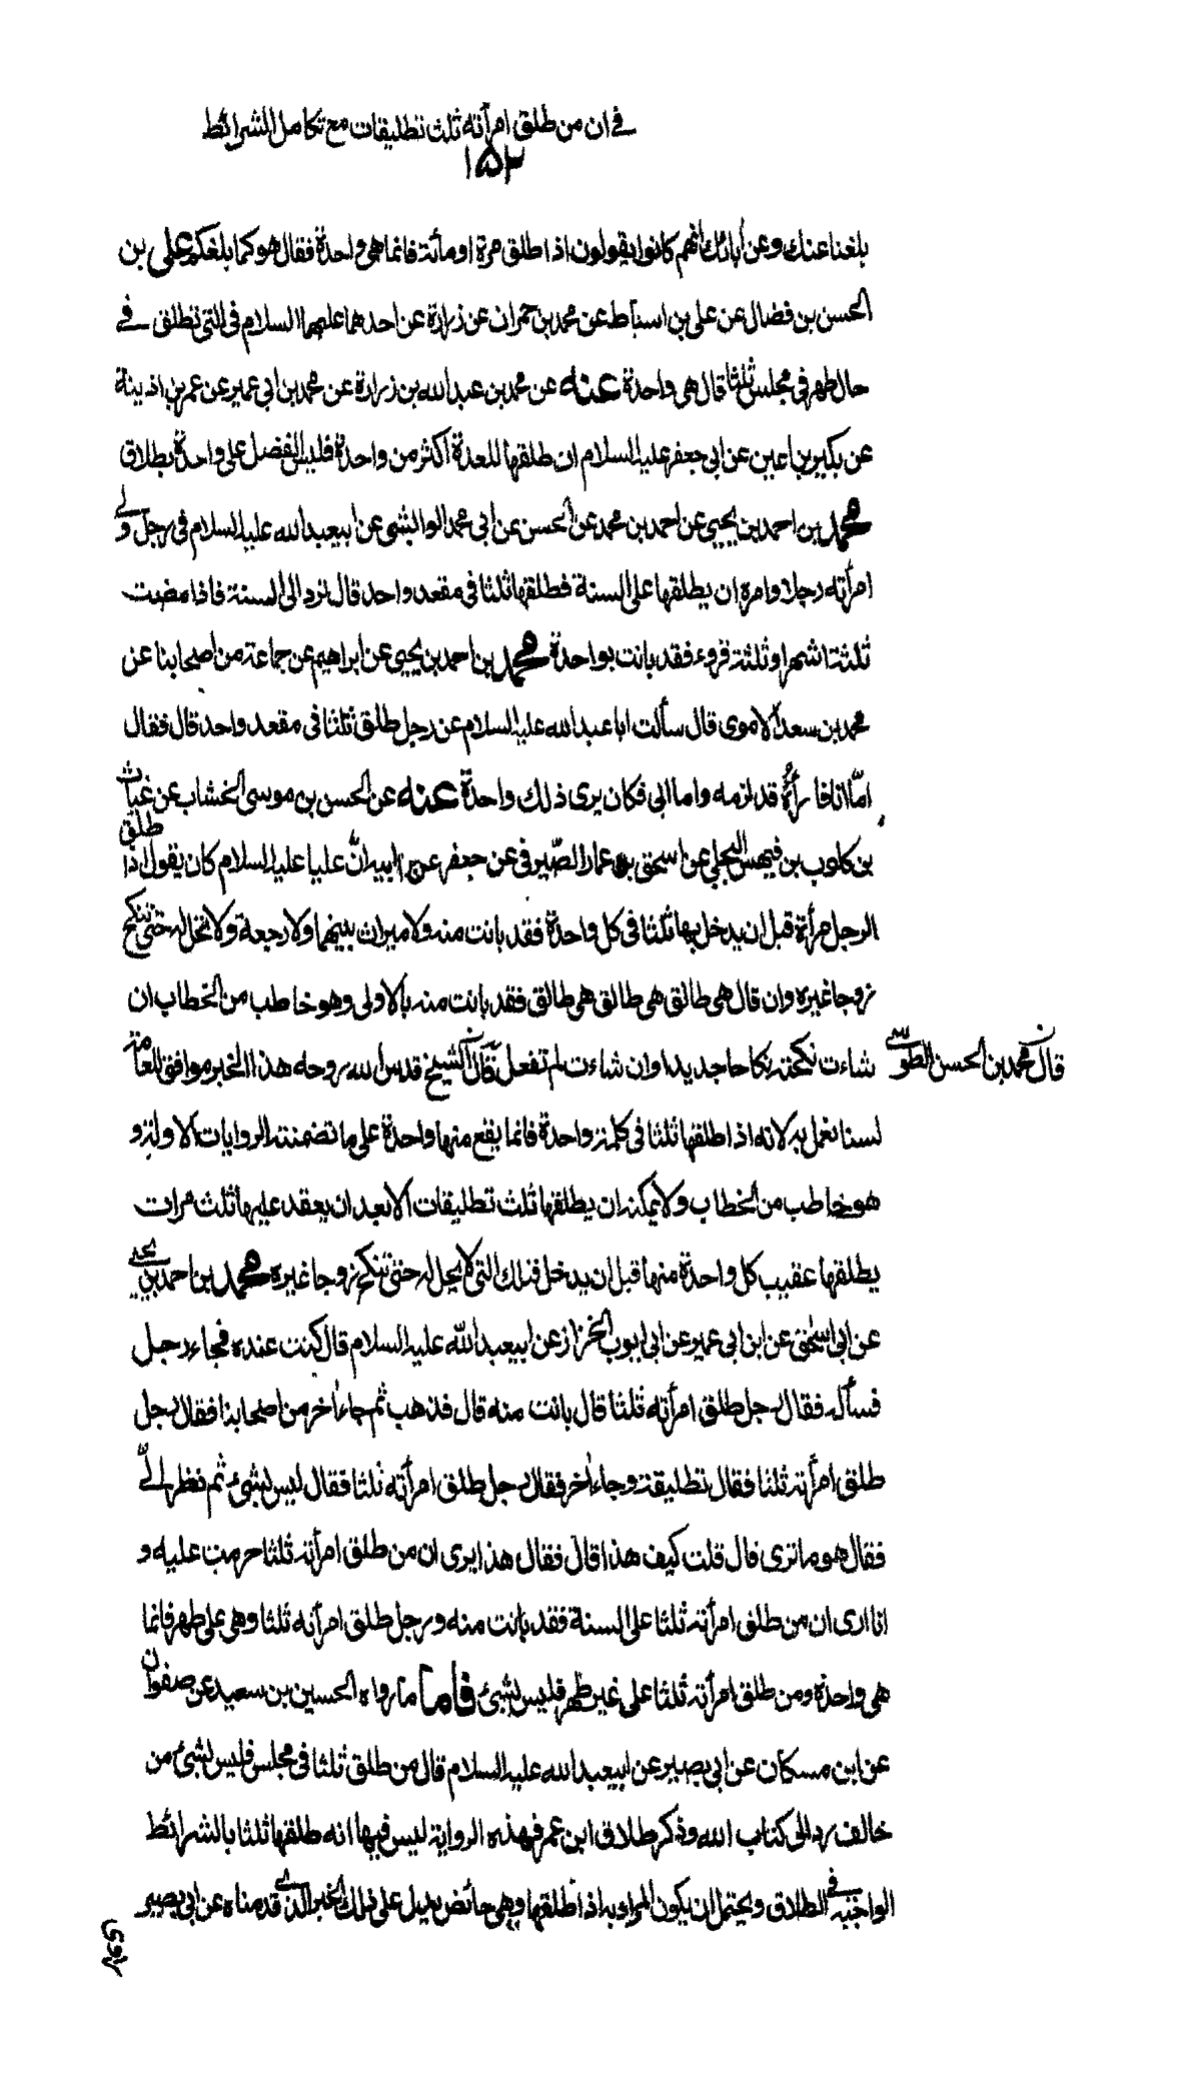 في ان من طلق امرأته ثلث تطليقات مع تكامل الشرائط
١٥٢
بلغنا عنك وعن آبائك انهم كانوا يقولون اذا طلق مرة او مائة فانما هى واحدة فقال هو كما بلغكم على بن
الحسن بن فضال عن على بن اسباط عن محمد بن حمران عن زرارة عن احدهما عليهما السلام فى التى تطلق في
حال طهر فى مجلس ثلثا قال هى واحدة عنه عن محمد بن عبدالله بن زرارة عن محمد بن ابى عمير عن عمر بن اذينة
عن بكير بن اعين عن ابى جعفر عليه السلام ان طلقها للعدة اكثر من واحدة فليس الفضل على واحدة بطلاق
محمد بن احمد بن يحيى عن احمد بن محمد عن الحسن عن ابى محمد الوابشى عن ابيعبدالله عليه السلام فى رجل ولى
امرأته رجلا وامره ان يطلقها على السنة فطلقها ثلثا فى مقعد واحد قال ترد الى السنة فاذا مضت
ثلثة اشهر او ثلثة قروء فقد بانت بواحدة محمد بن احمد بن يحيى عن ابراهيم عن جماعة من اصحابنا عن
محمد بن سعد الاموى قال سألت ابا عبدالله عليه السلام عن رجل طلق ثلثا فى مقعد واحد قال فقال
امّا انا فارأه قد لزمه واما ابى فكان يرى ذلك واحدة عنه عن الحسن بن موسى الخشاب عن غياث
بن كلوب بن فيهس البجلى عن اسحق بن عمار الصّيرفى عن جعفر عن ابيه انّ عليا عليه السلام كان يقول اذا طلق
الرجل امرأة قبل ان يدخل بها ثلثا فى كل واحدة فقد بانت منه ولا ميراث بينهما ولا رجعة ولا تحل له حتى تنكح
زوجا غيره وان قال هى طالق هى طالق هى طالق فقد بانت منه بالاولى وهو خاطب من الخطاب ان
شاءت نكحته نكاحا جديدا وان شاءت لم تفعل قال الشيخ قدس الله روحه هذا الخبر موافق للعامة
قال محمد بن الحسن الطوسى
لسنا نعمل به لانه اذا طلقها ثلثا فى كلمة واحدة فانما يقع منها واحدة على ما تضمنته الروايات الاولة و
هو خاطب من الخطاب ولا يمكنه ان يطلقها ثلث تطليقات الا بعد ان يعقد عليها ثلث مرات
يطلقها عقيب كل واحدة منها قبل ان يدخل فتلك التى لا يحل له حتى تنكح زوجا غيره محمد بن احمد بن يحيى
عن ابى اسحق عن ابن ابى عمير عن ابى ايوب الخزاز عن ابيعبدالله عليه السلام قال كنت عنده فجاء رجل
فسأله فقال رجل طلق امرأته ثلثا قال بانت منه قال فذهب ثم جاء اخر من اصحابنا فقال رجل
طلق امرأته ثلثا فقال تطليقة وجاء اخر فقال رجل طلق امرأته ثلثا فقال ليس بشئ ثم نظر الىّ
فقال هو ما ترى قال قلت كيف هذا قال فقال هذا يرى ان من طلق امرأته ثلثا حرمت عليه و
انا ارى ان من طلق امرأته ثلثا على السنة فقد بانت منه ورجل طلق امرأته ثلثا وهى على طهر فانما
هى واحدة ومن طلق امرأته ثلثا على غير طهر فليس بشئ فاما ما رواه الحسين بن سعيد عن صفوان
عن ابن مسكان عن ابى بصير عن ابيعبدالله عليه السلام قال من طلق ثلثا فى مجلس فليس بشئ من
خالف رد الى كتاب الله وذكر طلاق ابن عمر فهذه الرواية ليس فيها انه طلقها ثلثا بالشرائط
الواجبة فى الطلاق ويحتمل ان يكون المراد به اذا طلقها وهى حائض يدل على ذلك الخبر الذى قدمناه عن ابى بصير
روى